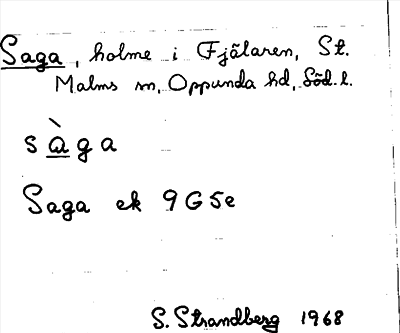 Saga, holme i Fjälaren, St.
Malms sn, Oppunda hd, Söd. l.
sàga
Saga ek 9G5e
S. Strandberg 1968